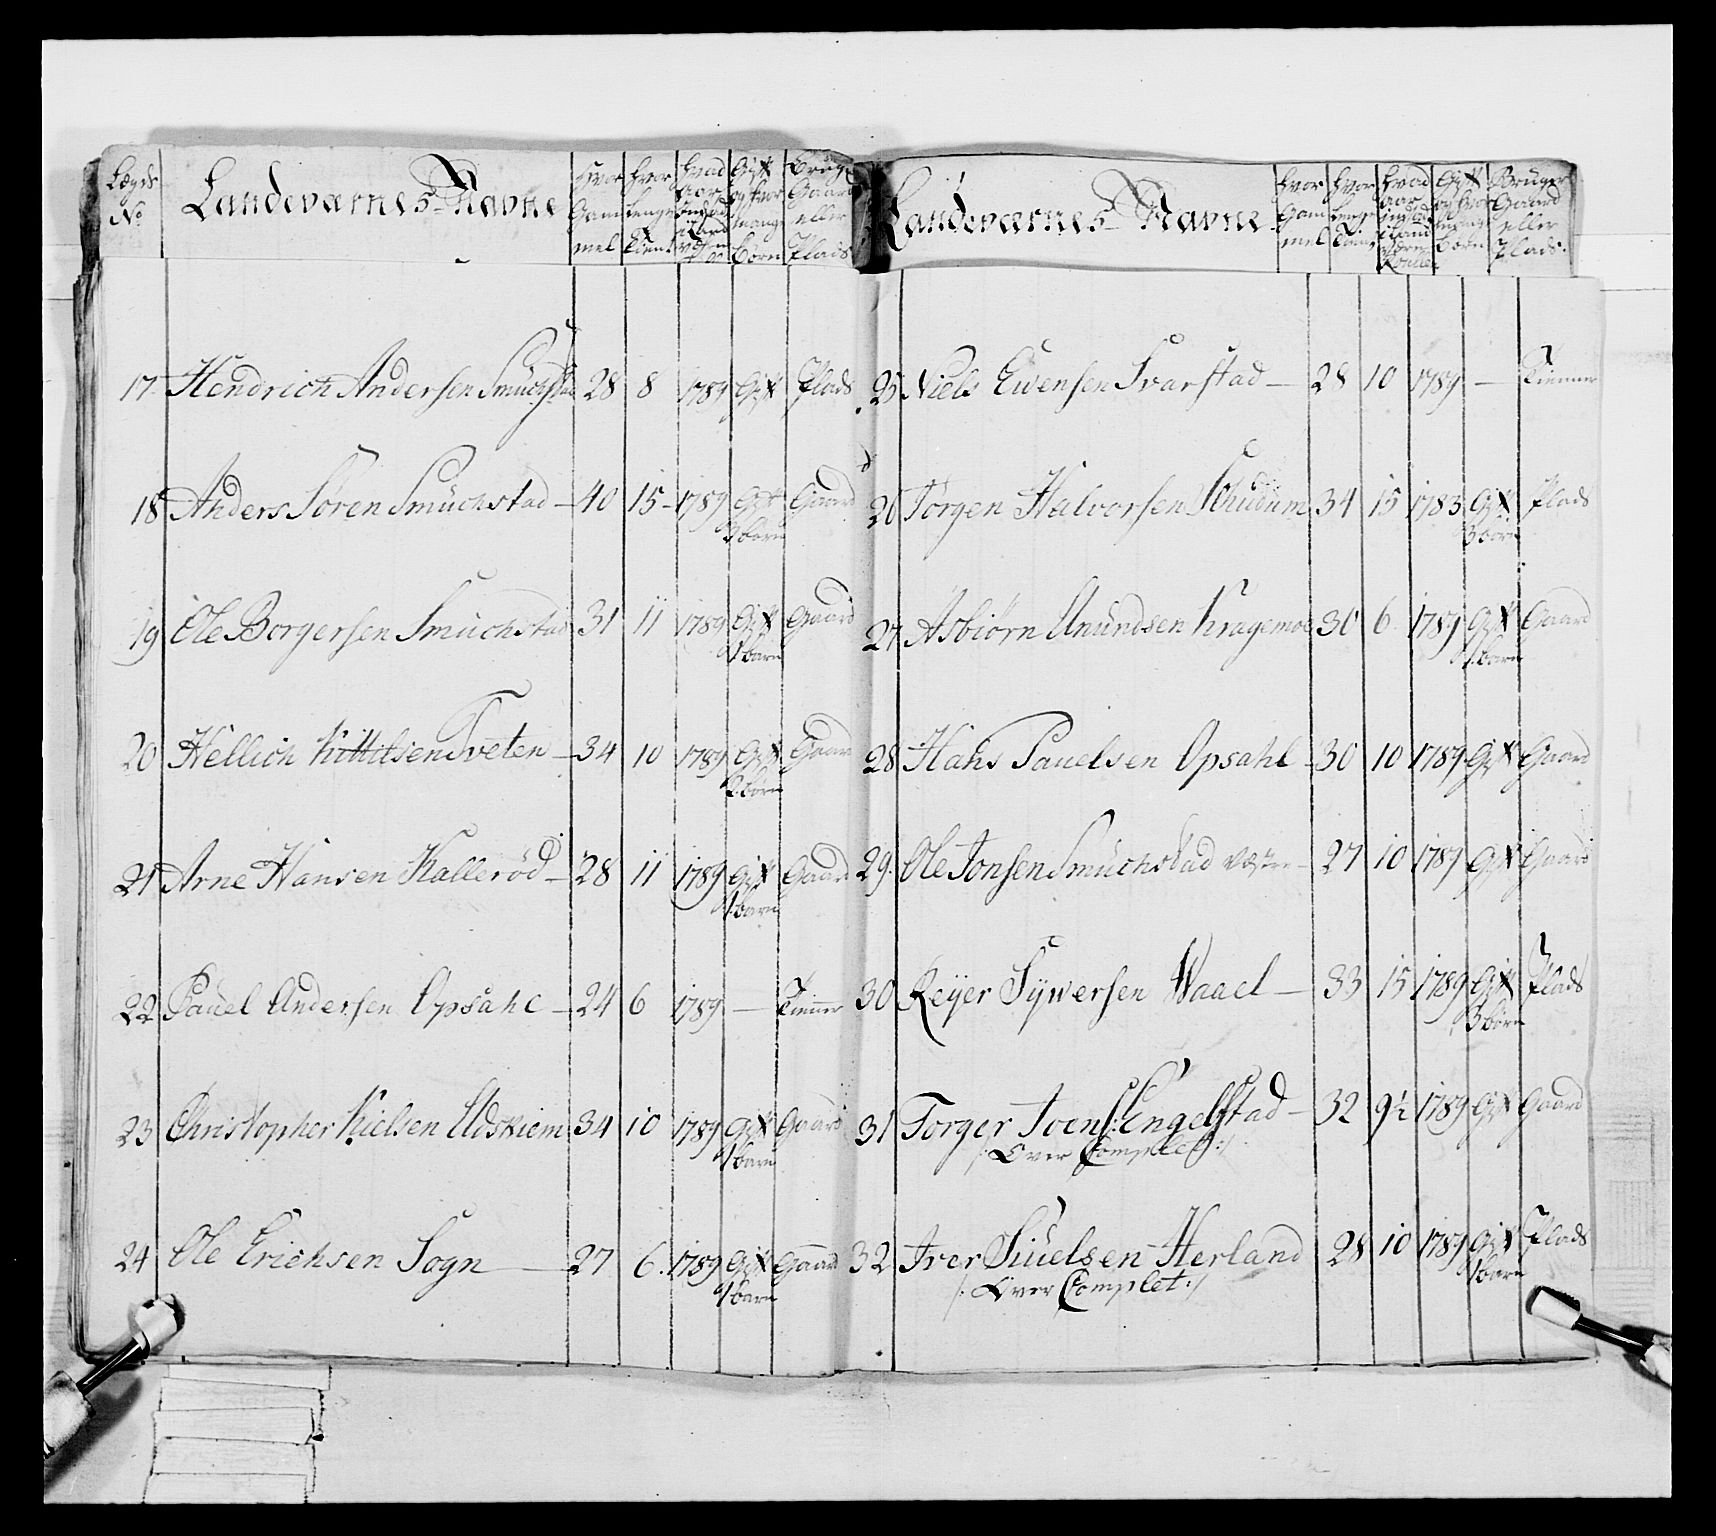 Lægds No Landeværnes Navne Hvor Gammel Hvor Lenge Tient Hvad Aar Gift og hvor mange Børn Gaard eller Plads
17 Hendrich Andersen Smuchstad 28 8 1789 Gift Plads
18 Anders Sören Smuchstad — 40 15 1789 Gift Gaard
3 börn
19 Ole Borgersen Smuchstad 31 11 1789 Gift Gaard
1 barn
20 Hellich Kittilsen Tveten — 34 10 1789 Gift Gaard
2 börn
21 Arne Hansen Kalleröd — 28 11 1789 Gift Gaard
1 barn
22 Pauel Andersen Opsahl — 24 6 1789 — Tienner
23 Christopher Nielsen Udskiem 34 10 1789 Gift Gaard
1 barn
24 Ole Erichsen Sogn — 27 6. 1789 Gift Gaard
1 barn
Landeværnes Navne Hvor Gammel Hvor Lenge Tient Hvad Aar Gift og hvor mange Børn Bruger Gaard eller Plads.
25 Niels Ewensen Svarstad — 28 10 1789 — Tienner
26 Torgen Halvorsen 34 15 1783 Gift Plads
3 börn
27 Asbiörn Anundsen Kragemoe 30 6 1789 Gift Gaard
1 barn
28 Hans Pauelsen Opsahl — 30 10 1789 Gift Gaard
29. Ole Jonsen Smuchstad — 27 10 1789 Gift Gaard
30 Reyer Sywersen Waael — 33 15 1789 Gift Plads
3 börn
31 Torger Joens: Engelstad — 32 9½ 1789 Gift Gaard
/: Over Complet :/
32 Iver Siuelsen Herland 28 10 1789 Gift Plads
/: Over Complet :/ 1 barn